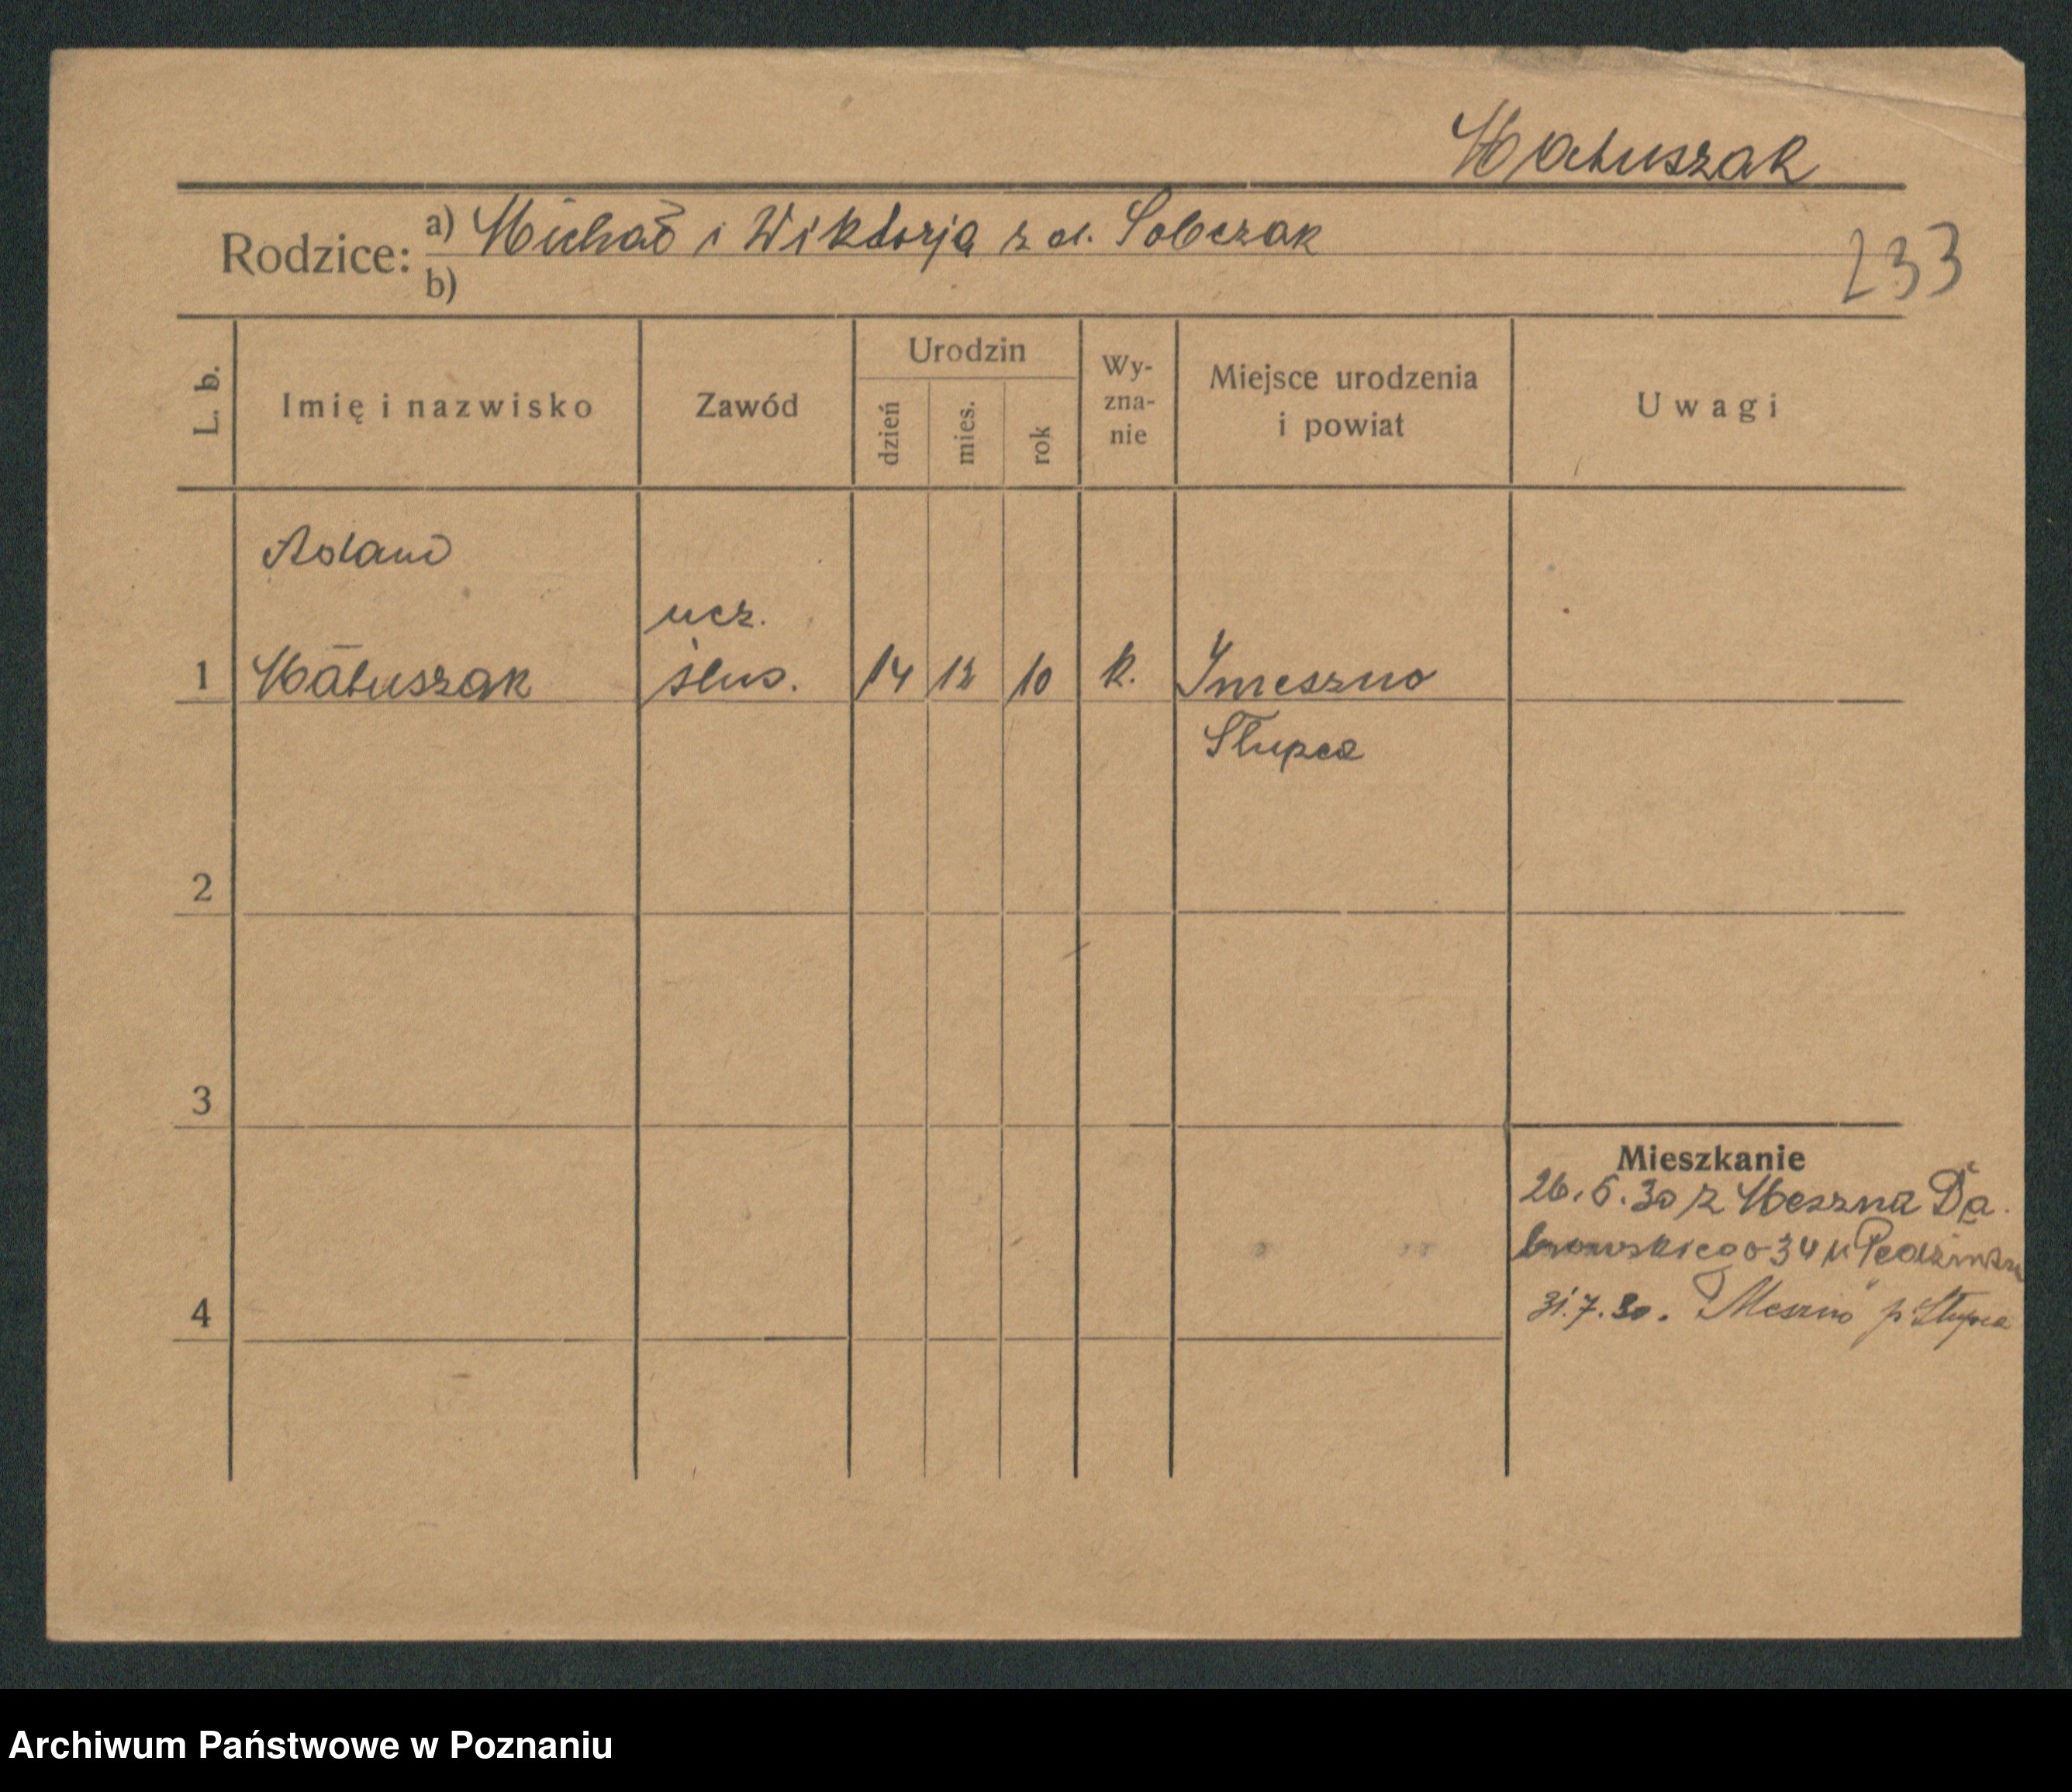 Matuszak
Rodzice: a) Michał i Wiktorja z d. Sobczak
b)
233
L. b.
Imię i nazwisko
Zawód
Urodzin
dzień
mies.
rok
Wy-
zna-
nie
Miejsce urodzenia
i powiat
Uwagi
Adam
ucz.
1 Matuszak ślus. 14 12 10 k.
Słupca
2
3
Mieszkanie
26. 5. 30 z Meszna Dą
browskiego 34 u
4
31. 7. 30. Meszno p. Słupca
Archiwum Państwowe w Poznaniu